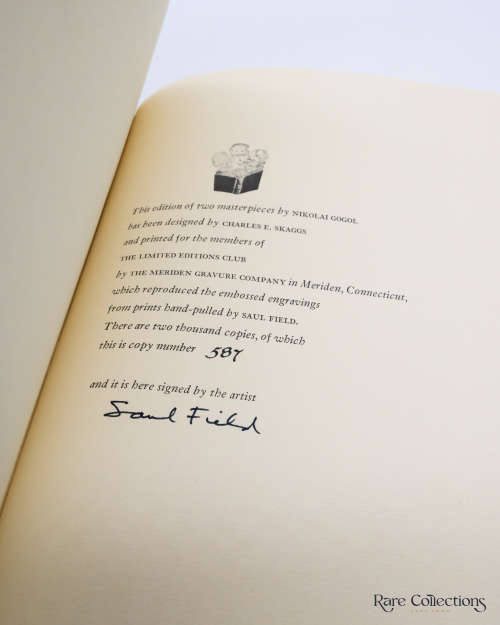 This edition of two masterpieces by NIKOLAI GOGOL
has been designed by CHARLES E. SKAGGS
and printed for the members of
THE LIMITED EDITIONS CLUB
by THE MERIDEN GRAVURE COMPANY in Meriden, Connecticut,
which reproduced the embossed engravings
from prints hand-pulled by SAUL FIELD.
There are two thousand copies, of which
this is copy number 587
and it is here signed by the artist
Saul Field
Rare Collections